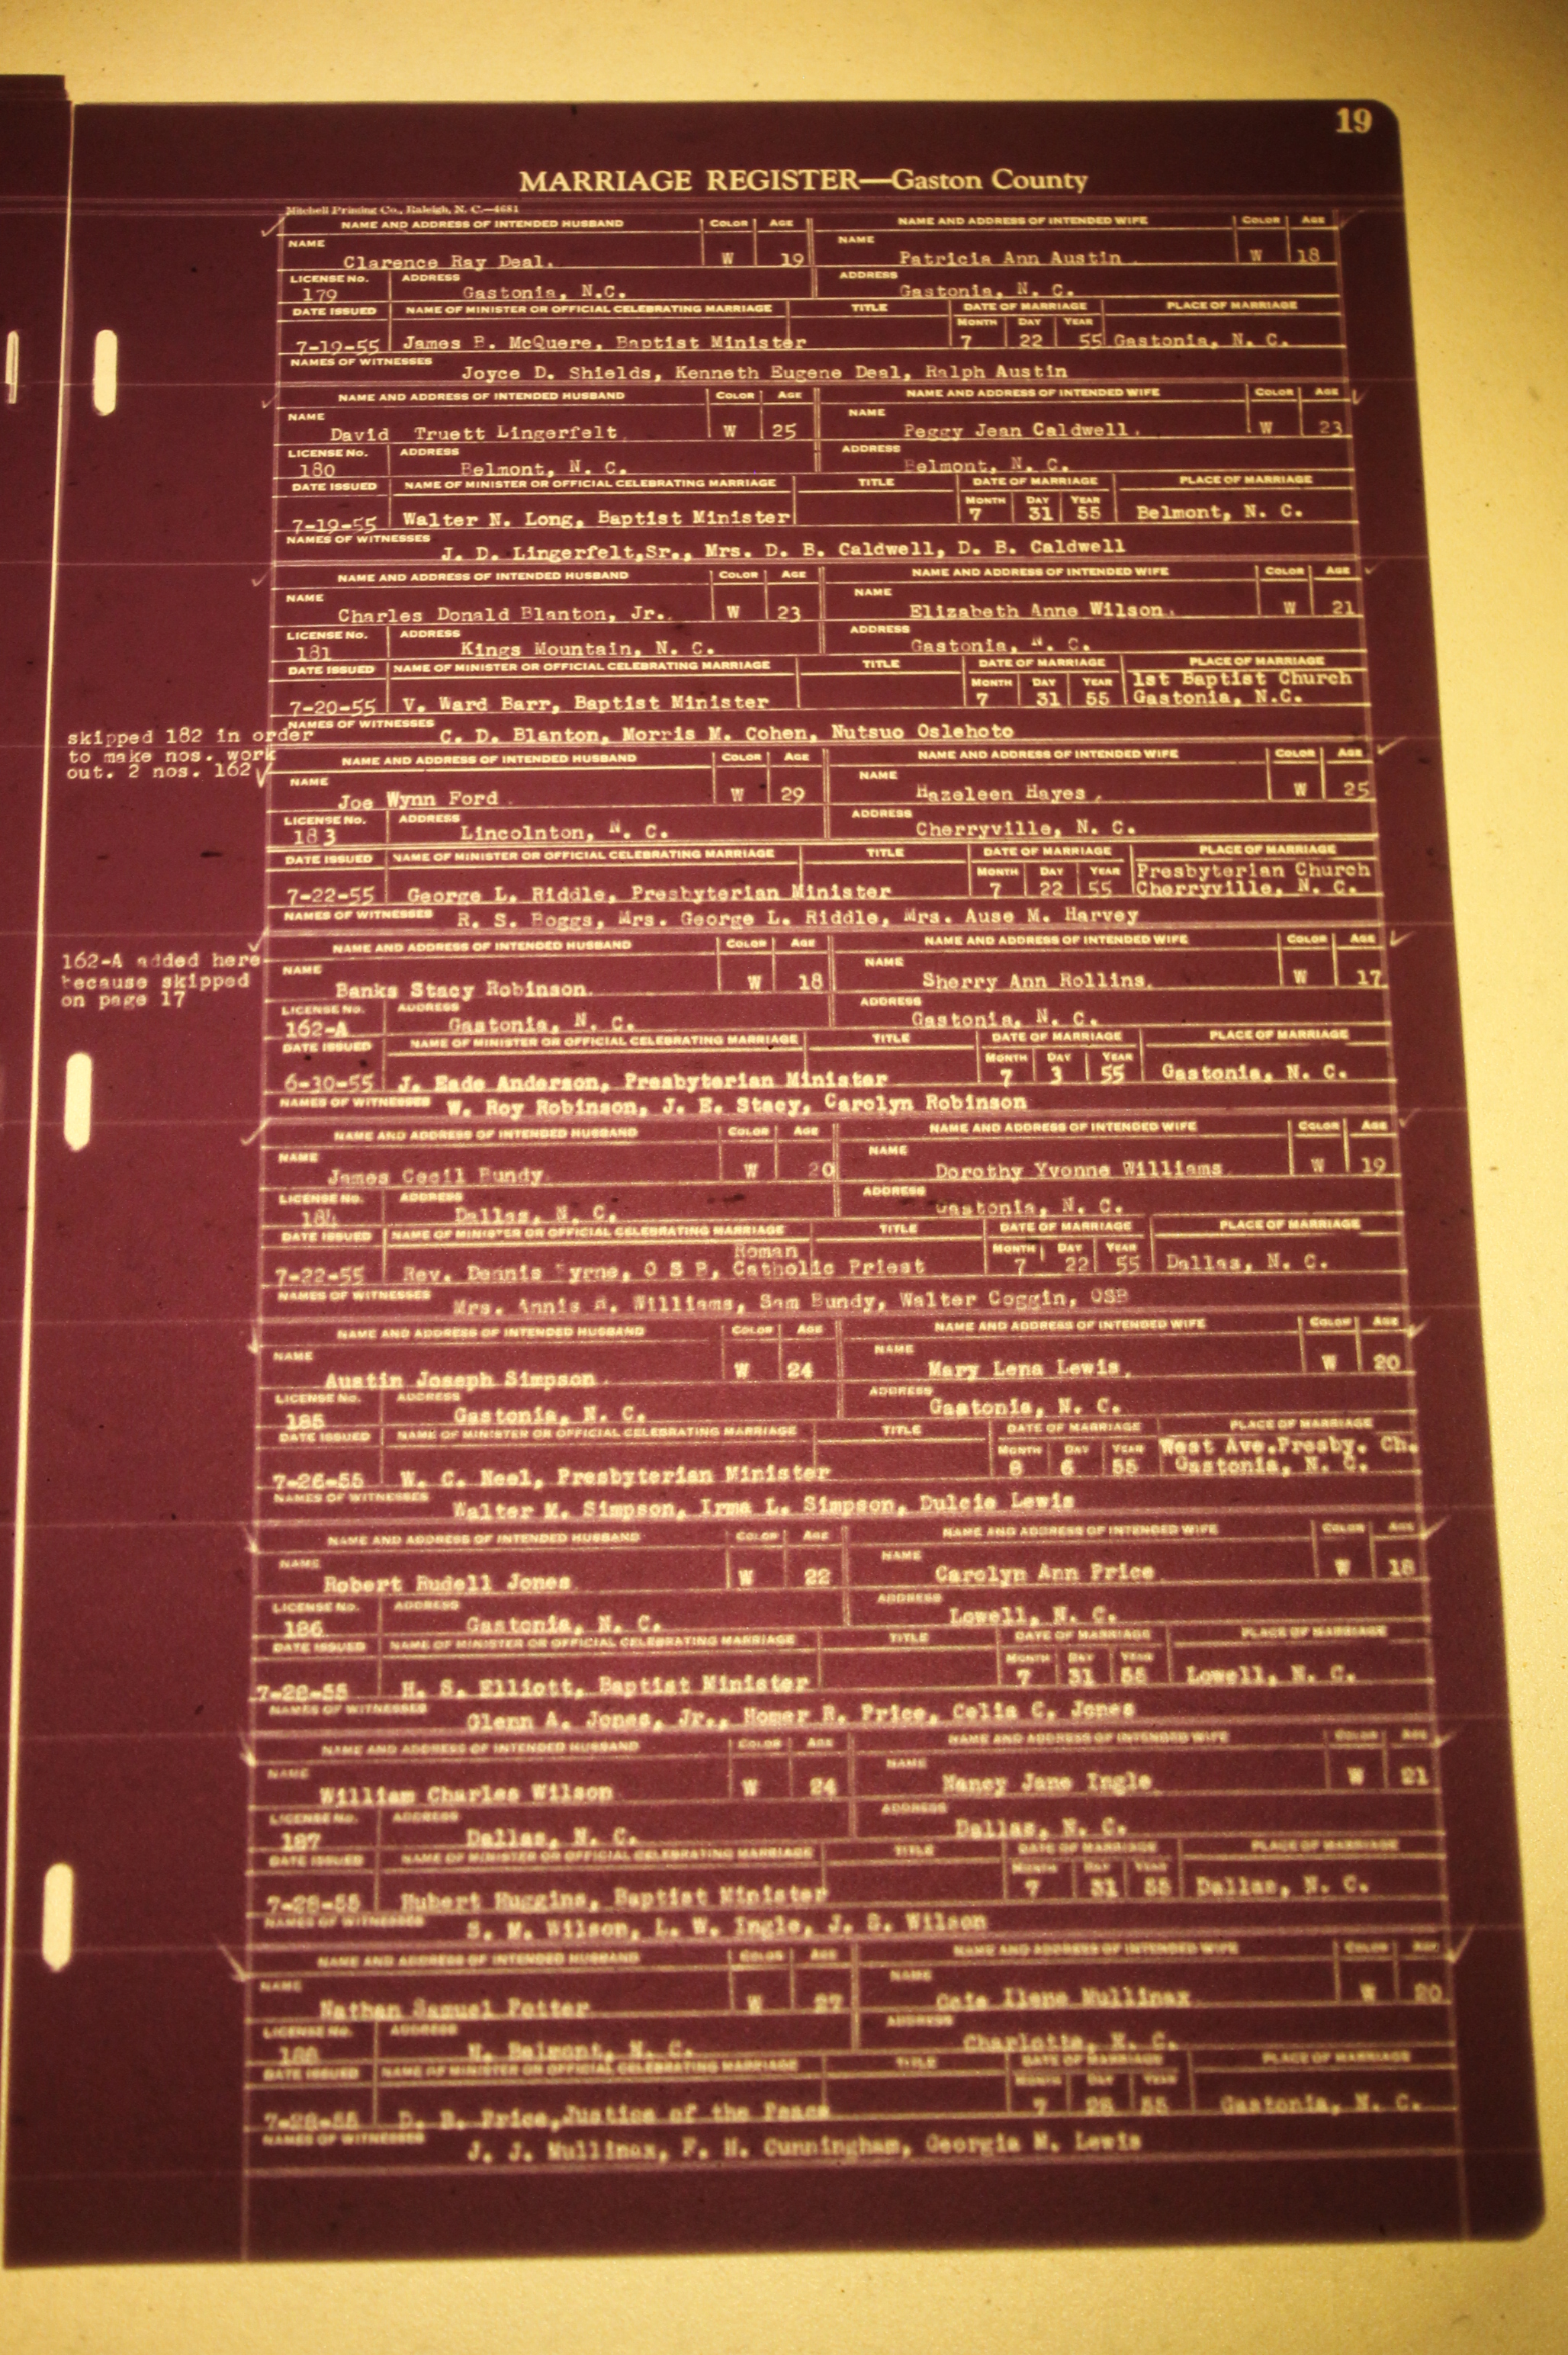 19
MARRIAGE REGISTER—Gaston County
Mitchell Printing Co., Raleigh, N. C.—4681
NAME AND ADDRESS OF INTENDED HUSBAND COLOR AGE NAME AND ADDRESS OF INTENDED WIFE COLOR AGE
NAME Clarence Ray Deal. W 19 NAME Patricia Ann Austin W 18
LICENSE No. 179 ADDRESS Gastonia, N.C. ADDRESS Gastonia, N. C.
DATE ISSUED NAME OF MINISTER OR OFFICIAL CELEBRATING MARRIAGE TITLE DATE OF MARRIAGE PLACE OF MARRIAGE
MONTH DAY YEAR
7-19-55 James B. McQuere, Baptist Minister 7 22 55 Gastonia, N. C.
NAMES OF WITNESSES Joyce D. Shields, Kenneth Eugene Deal, Ralph Austin
NAME AND ADDRESS OF INTENDED HUSBAND COLOR AGE NAME AND ADDRESS OF INTENDED WIFE COLOR AGE
NAME David Truett Lingerfelt W 25 NAME Peggy Jean Caldwell. W 23
LICENSE No. 180 ADDRESS Belmont, N. C. ADDRESS Belmont, N. C.
DATE ISSUED NAME OF MINISTER OR OFFICIAL CELEBRATING MARRIAGE TITLE DATE OF MARRIAGE PLACE OF MARRIAGE
MONTH DAY YEAR
7-19-55 Walter N. Long, Baptist Minister 7 31 55 Belmont, N. C.
NAMES OF WITNESSES J. D. Lingerfelt,Sr., Mrs. D. B. Caldwell, D. B. Caldwell
NAME AND ADDRESS OF INTENDED HUSBAND COLOR AGE NAME AND ADDRESS OF INTENDED WIFE COLOR AGE
NAME Charles Donald Blanton, Jr. W 23 NAME Elizabeth Anne Wilson. W 21
LICENSE No. 181 ADDRESS Kings Mountain, N. C. ADDRESS Gastonia, N. C.
DATE ISSUED NAME OF MINISTER OR OFFICIAL CELEBRATING MARRIAGE TITLE DATE OF MARRIAGE PLACE OF MARRIAGE
MONTH DAY YEAR 1st Baptist Church
7-20-55 V. Ward Barr, Baptist Minister 7 31 55 Gastonia, N.C.
NAMES OF WITNESSES C. D. Blanton, Morris M. Cohen, Nutsuo Oslehoto
skipped 182 in order
to make nos. work
out. 2 nos. 162
NAME AND ADDRESS OF INTENDED HUSBAND COLOR AGE NAME AND ADDRESS OF INTENDED WIFE COLOR AGE
NAME Joe Wynn Ford W 29 NAME Hazeleen Hayes W 25
LICENSE No. 183 ADDRESS Lincolnton, N. C. ADDRESS Cherryville, N. C.
DATE ISSUED NAME OF MINISTER OR OFFICIAL CELEBRATING MARRIAGE TITLE DATE OF MARRIAGE PLACE OF MARRIAGE
MONTH DAY YEAR Presbyterian Church
7-22-55 George L. Riddle, Presbyterian Minister 7 22 55 Cherryville, N. C.
NAMES OF WITNESSES R. S. Boggs, Mrs. George L. Riddle, Mrs. Ause M. Harvey
162-A added here
because skipped
on page 17
NAME AND ADDRESS OF INTENDED HUSBAND COLOR AGE NAME AND ADDRESS OF INTENDED WIFE COLOR AGE
NAME Banks Stacy Robinson W 18 NAME Sherry Ann Rollins. W 17
LICENSE No. 162-A ADDRESS Gastonia, N. C. ADDRESS Gastonia, N. C.
DATE ISSUED NAME OF MINISTER OR OFFICIAL CELEBRATING MARRIAGE TITLE DATE OF MARRIAGE PLACE OF MARRIAGE
MONTH DAY YEAR
6-30-55 J. Eade Anderson, Presbyterian Minister 7 3 55 Gastonia, N. C.
NAMES OF WITNESSES W. Roy Robinson, J. E. Stacy, Carolyn Robinson
NAME AND ADDRESS OF INTENDED HUSBAND COLOR AGE NAME AND ADDRESS OF INTENDED WIFE COLOR AGE
NAME James Cecil Bundy W 20 NAME Dorothy Yvonne Williams W 19
LICENSE No. 184 ADDRESS Dallas, N. C. ADDRESS Gastonia, N. C.
DATE ISSUED NAME OF MINISTER OR OFFICIAL CELEBRATING MARRIAGE TITLE DATE OF MARRIAGE PLACE OF MARRIAGE
Roman MONTH DAY YEAR
7-22-55 Rev. Dennis yrne, O S B, Catholic Priest 7 22 55 Dallas, N. C.
NAMES OF WITNESSES Mrs. Annis Williams, Sam Bundy, Walter Coggin, OSB
NAME AND ADDRESS OF INTENDED HUSBAND COLOR AGE NAME AND ADDRESS OF INTENDED WIFE COLOR AGE
NAME Austin Joseph Simpson W 24 NAME Mary Lena Lewis. W 20
LICENSE No. 185 ADDRESS Gastonia, N. C. ADDRESS Gastonia, N. C.
DATE ISSUED NAME OF MINISTER OR OFFICIAL CELEBRATING MARRIAGE TITLE DATE OF MARRIAGE PLACE OF MARRIAGE
MONTH DAY YEAR West Ave.Presby. Ch.
7-26-55 W. C. Neel, Presbyterian Minister 8 6 55 Gastonia, N. C.
NAMES OF WITNESSES Walter M. Simpson, Irma L. Simpson, Dulcie Lewis
NAME AND ADDRESS OF INTENDED HUSBAND COLOR AGE NAME AND ADDRESS OF INTENDED WIFE COLOR AGE
NAME Robert Rudell Jones W 22 NAME Carolyn Ann Price W 18
LICENSE No. 186 ADDRESS Gastonia, N. C. ADDRESS Lowell, N. C.
DATE ISSUED NAME OF MINISTER OR OFFICIAL CELEBRATING MARRIAGE TITLE DATE OF MARRIAGE PLACE OF MARRIAGE
MONTH DAY YEAR
7-28-55 H. S. Elliott, Baptist Minister 7 31 55 Lowell, N. C.
NAMES OF WITNESSES Glenn A. Jones, Jr., Homer R. Price, Celia C. Jones
NAME AND ADDRESS OF INTENDED HUSBAND COLOR AGE NAME AND ADDRESS OF INTENDED WIFE COLOR AGE
NAME William Charles Wilson W 24 NAME Nancy Jane Ingle W 21
LICENSE No. 187 ADDRESS Dallas, N. C. ADDRESS Dallas, N. C.
DATE ISSUED NAME OF MINISTER OR OFFICIAL CELEBRATING MARRIAGE TITLE DATE OF MARRIAGE PLACE OF MARRIAGE
MONTH DAY YEAR
7-28-55 Hubert Huggins, Baptist Minister 7 31 55 Dallas, N. C.
NAMES OF WITNESSES S. M. Wilson, L. W. Ingle, J. S. Wilson
NAME AND ADDRESS OF INTENDED HUSBAND COLOR AGE NAME AND ADDRESS OF INTENDED WIFE COLOR AGE
NAME Nathan Samuel Potter W 27 NAME Ilene Mullinax W 20
LICENSE No. 188 ADDRESS N. Belmont, N. C. ADDRESS Charlotte, N. C.
DATE ISSUED NAME OF MINISTER OR OFFICIAL CELEBRATING MARRIAGE TITLE DATE OF MARRIAGE PLACE OF MARRIAGE
MONTH DAY YEAR
7-28-55 D. B. Price,Justice of the Peace 7 28 55 Gastonia, N. C.
NAMES OF WITNESSES J. J. Mullinax, F. H. Cunningham, Georgia M. Lewis